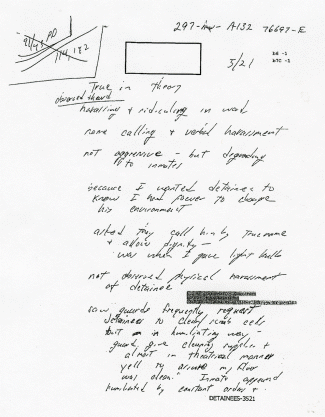 297-HQ-A132 76697-E
5/21
b6 -1
b7C -1
True in theory
observed theard
harassing & ridiculing in word
name calling & verbal harassment
not aggressive - but degrading
to inmates
because I wanted detainee to
know I had power to change
his environment
asked they call him by true name
& allow dignity -
was when I gave light bulb
not observed physical harassment
of detainee
saw guards frequently request
detainees to clean cells
but in humiliating way -
guard give cleaning supplies &
almost in theatrical manner
yell to around my floor
was clean. Inmate appeared
humiliated by constant order &
DETAINEES-3521